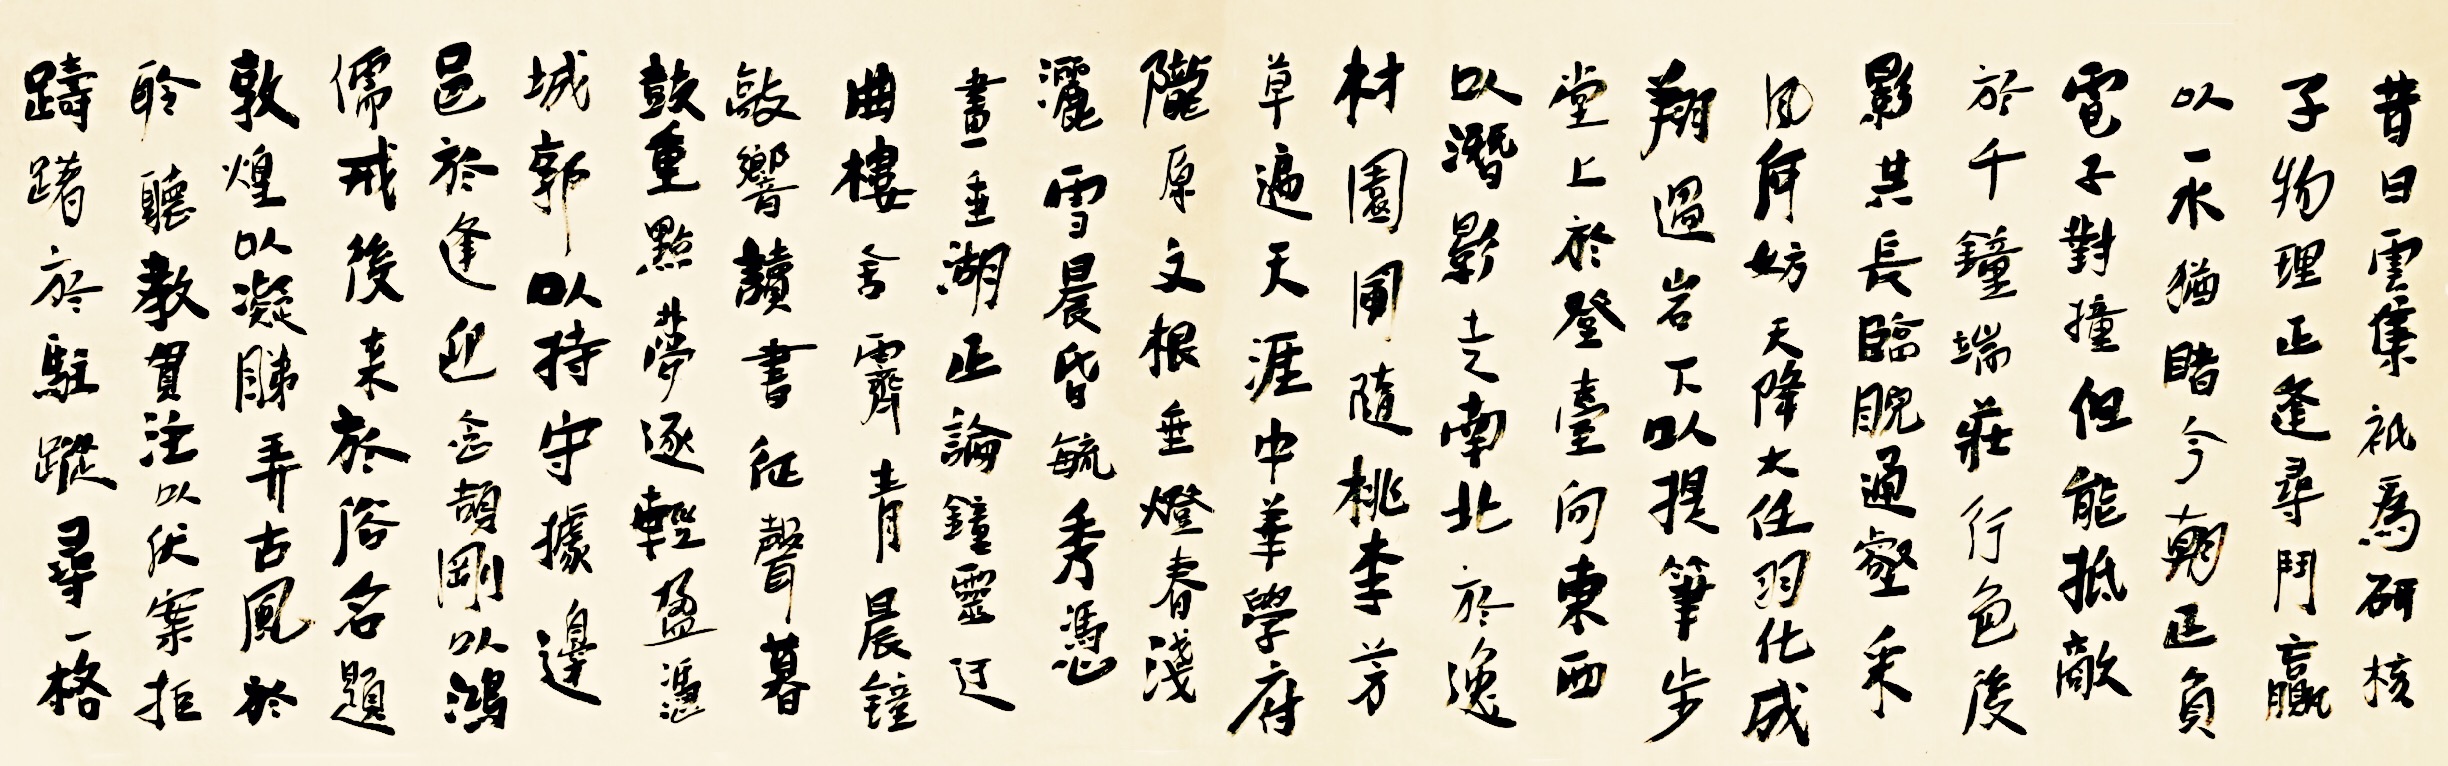 昔日雲集祇爲研核
子物理正逢尋鬥贏
以一永猶睹今朝正負
電子對撞但能抵敵
於千鐘端莊行色後
影其長臨睨通壑采
風何妨天降大任羽化成
翔過岩下以提筆步
堂上於登臺向東西
以潛影走南北於逸
材園圃隨桃李芳
草遍天涯中華學府
隴原文根垂燈春淺
灑雪晨昏毓秀憑
畫一垂湖正論鐘靈迂
曲樓舍霽青晨鐘
敲響讀書征聲暮
鼓重點夢逐輕盈憑
城郭以持守據邊
邑於逢迎念頡剛以鴻
儒戒後来於俗名題
敦煌以凝睇弄古風於
聆聽教貫注以伏案拒
躊躇於駐蹤尋一格